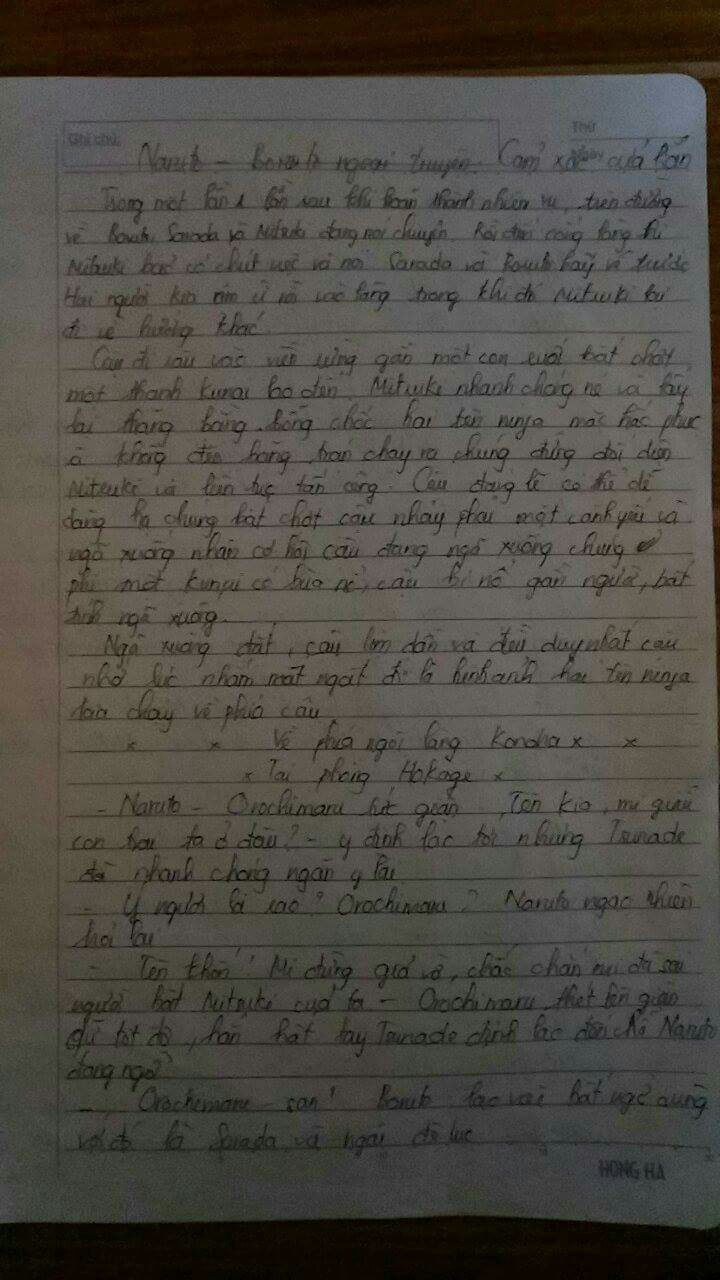 Ghi chú:
Thứ
Naruto - Boruto ngoại truyện. Cảm xúc của rắn
Trong một lần sau khi hoàn thành nhiệm vụ, trên đường
về Boruto, Sarada và Mitsuki đang nói chuyện. Rồi đến cổng làng thì
Mitsuki bảo có chút việc và nói Sarada và Boruto hãy về trước
Hai người kia ừ rồi vào làng trong khi đó Mitsuki lại
đi về hướng khác.
Cậu đi sâu vào rừng gần một con suối bất chợt
một thanh kunai lao đến. Mitsuki nhanh chóng né và lấy
lại thăng bằng. bỗng chốc hai tên ninja mặc hắc phục
chạy ra chúng đứng đối diện
Mitsuki và liên tục tấn công. Cậu đáng lẽ có thể dễ
dàng hạ chúng bất chợt cậu nhảy phải một cành yếu và
ngã xuống nhân cơ hội cậu đang ngã xuống chúng
phi một kunai có bùa nổ, cậu bị nổ gần người, bất
tỉnh ngã xuống.
Ngã xuống đất, cậu lịm dần và điều duy nhất cậu
nhớ lúc nhắm mắt ngất đi là hình ảnh hai tên ninja
chạy về phía cậu
x x Về phía ngôi làng Konoha x x
x Tại phòng Hokage x
- Naruto - Orochimaru tức giận, Tên kia, mi giấu
con trai ta ở đâu? - y định lao tới nhưng Tsunade
đã nhanh chóng ngăn y lại
- Ý ngươi là sao? Orochimaru? Naruto ngạc nhiên
hỏi lại
- Tên khốn! Mi đừng giả vờ, chắc chắn mi đã sai
người bắt Mitsuki của ta - Orochimaru thét lên giận
dữ tột độ, hắn hất tay Tsunade định lao đến chỗ Naruto
đang ngồi
- Orochimaru - san! Boruto lao vào bất ngờ cùng
với đó là Sarada và ngài đệ lục
HONG HA